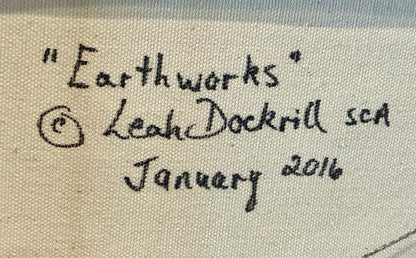 "Earthworks"
© Leah Dockrill SCA
January 2016